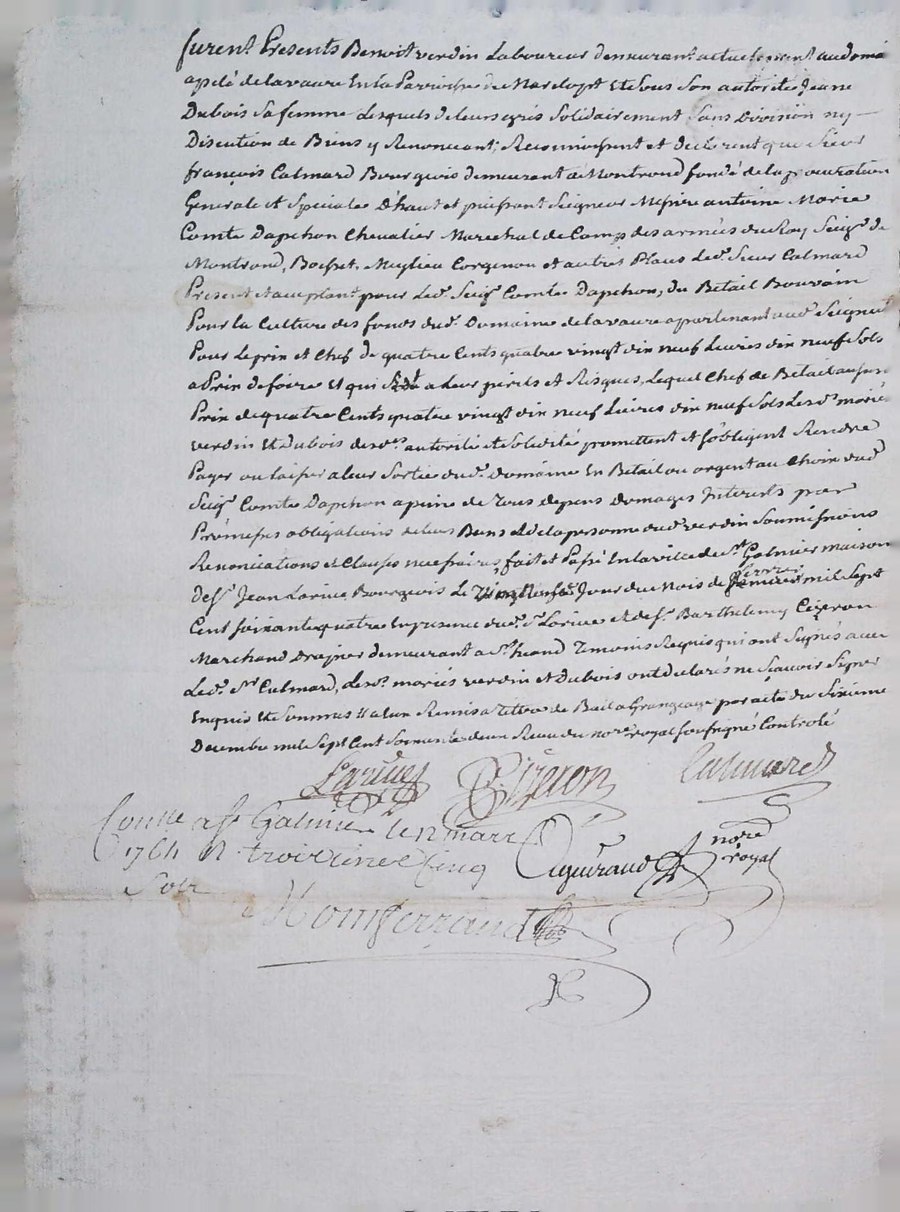 furent Presents Benoit verdin Laboureur demeurant actuellement au domai
apelé de lavaure En la Parroisse de Marclopt Et sous Son autorité Jeane
Dubois Sa femme Lesquels de leurs grés Solidairement Sans Division ny
Discution de Biens y Renonceant; Reconnoissent et declarent que Sieur
françois Calmard Bourgeois demeurant à Montrond fondé de la procuration
Generale et Speciale D'haut et puissant Seigneur Messire antoine Marie
Comte Dapchon Chevalier Marechal de Camp des armées du Roy Seigr. de
Montrond, Boisset, Meylieu Corgenou et autres Places Led. Sieur Calmard
Present et aceptant pour Led. Seigr. Comte Dapchon, du Betail Bouvain
Pour la Culture des fonds dud. Domaine de lavaure apartenant aud. Seigneur
Pour Le prix et Chef de quatre Cents quatre vingt dix neuf Livres dix neuf Sols
a Prix de foire Et qui a Leur périls et Risques, Lequel Chef de Betail au susd
Prix de quatre Cents quatre vingt dix neuf Livres dix neuf Sols Lesds. mariés
verdin Et Dubois desds. autorité et Solidité promettent et s'obligent Rendre
Payer ou laisser a leur Sortie dud. Domaine En Betail ou argent au Choix dud
Seigr. Comte Dapchon a peine de Tous depens Domages Interests par
Promesses obligations de leurs Biens et de la personne dud. verdin Soumissions
Renonciations et Clauses necessaires fait et Passé En la ville de St. Galmier maison
de Sr. Jean Larive Bourgeois Le Jour du Mois de fevrier mil Sept
Cent soixante quatre En presence dud. Sr. Larive et de Sr. Barthelemy Cizeron
Marchand Drapier demeurant a St. heand Temoins Requis qui ont Signés avec
Led. Sr. Calmard, Lesds. mariés verdin et Dubois ont declarés ne Scavoir Signer
Enquis Et Sommés Remis a Titre de Bail a Grangeage par acte du Sixieme
Decembre mil Sept Cent Soixante deux Receu du nore. royal soussigné Controlé
Larive Cizeron Calmard
nore. royal
Conlle a St Galmier le 12 mars
1764 R troix livres Cinq
Sols
Montferrand